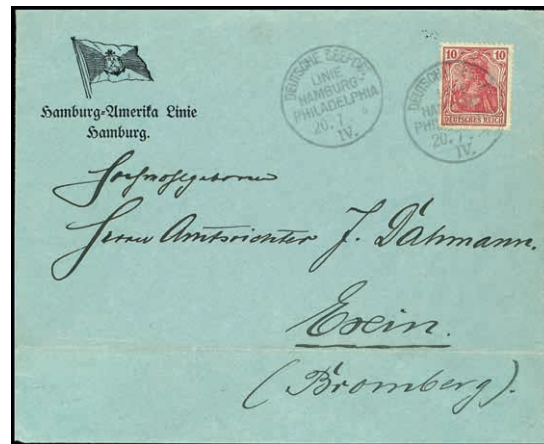 Hamburg-Amerika Linie
Hamburg.
DEUTSCHE SEEPOST
LINIE
HAMBURG-
PHILADELPHIA
20. 7.
IV.
10 10
DEUTSCHES REICH
DEUTSCHE
HA
PHI
20. 7.
IV.
Hochwohlgeboren
Herrn Amtsrichter J. Dähmann.
Exin.
(Bromberg).